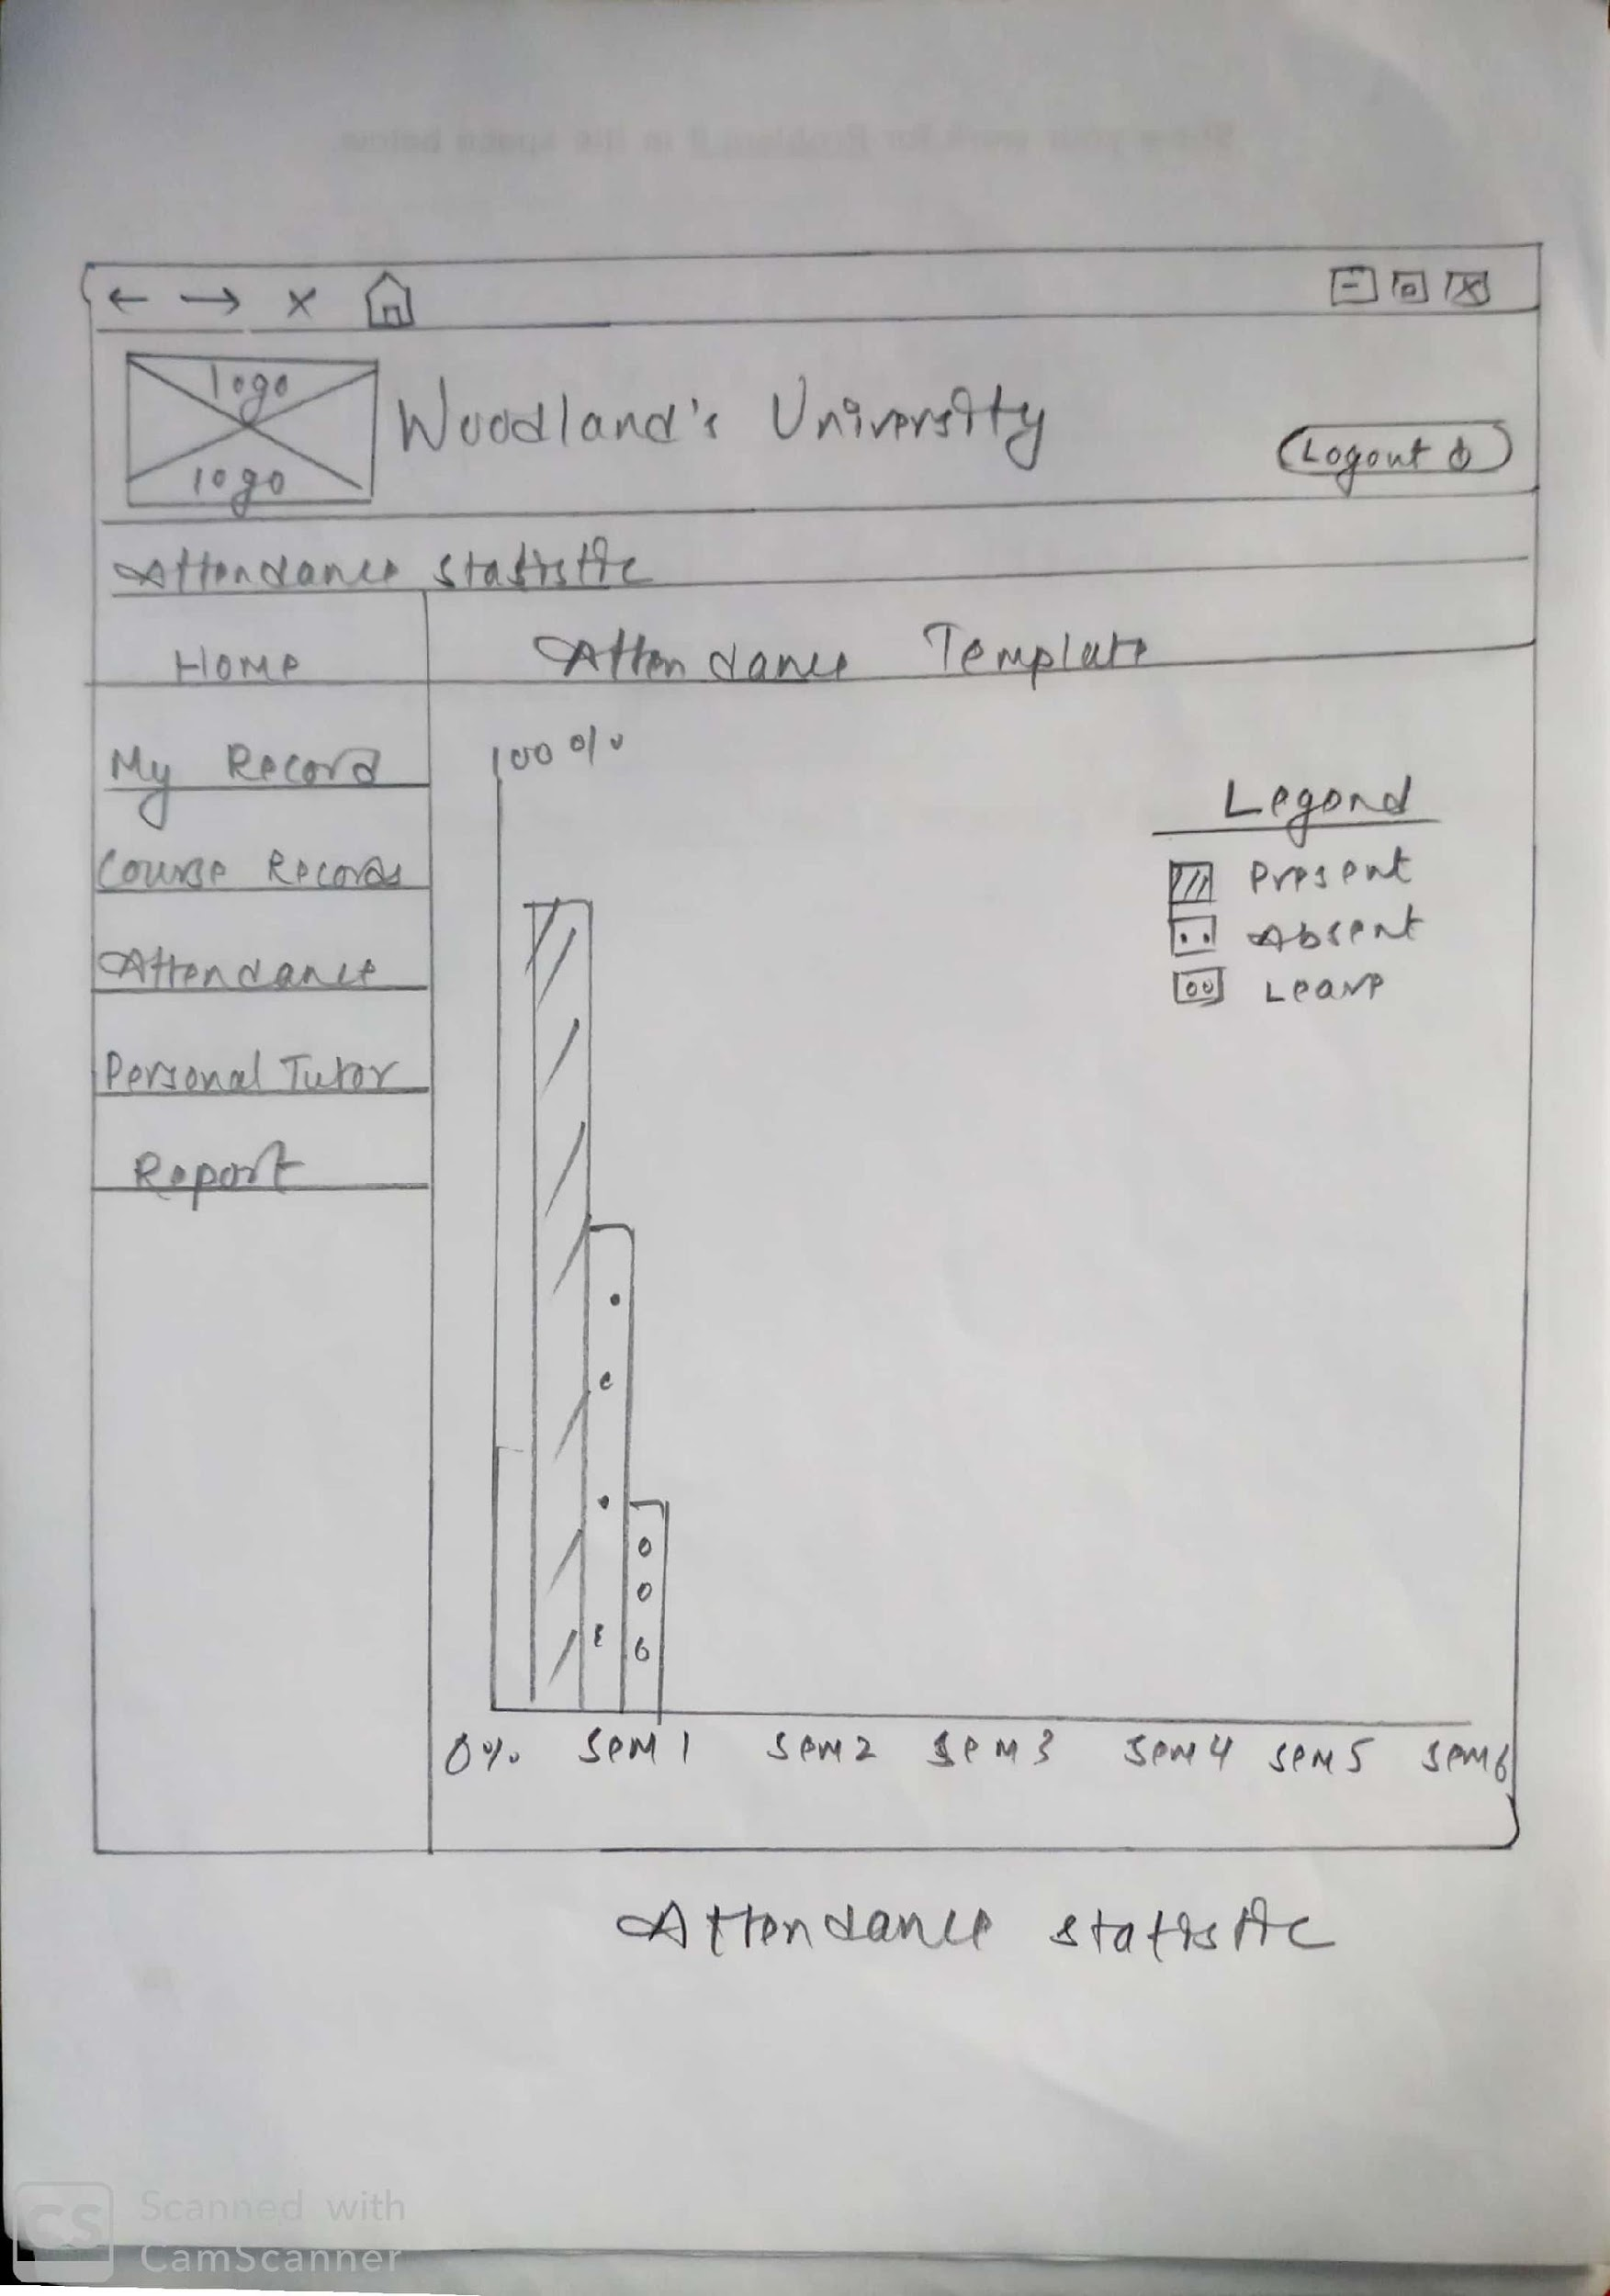 logo
logo
Woodland's University
Logout
Attendance statistic
Home
Attendance Template
My Record
Course Records
Attendance
Personal Tutor
Report
100%
Legend
Present
Absent
Leave
0% Sem 1 Sem 2 Sem 3 Sem 4 Sem 5 Sem 6
Attendance statistic
CS
Scanned with
CamScanner